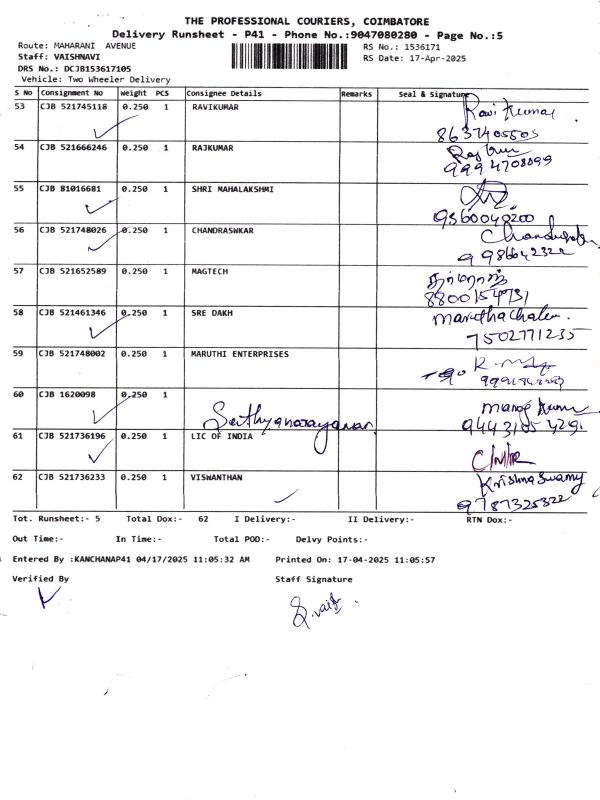 THE PROFESSIONAL COURIERS, COIMBATORE
Delivery Runsheet - P41 - Phone No.:9047080280 - Page No.:5
Route: MAHARANI AVENUE
RS No.: 1536171
Staff: VAISHNAVI
RS Date: 17-Apr-2025
DRS No.: DCJB153617105
Vehicle: Two Wheeler Delivery
S No Consignment No Weight PCS Consignee Details Remarks Seal & Signature
53 CJB 521745118 0.250 1 RAVIKUMAR Ravi Kumar
8637405503
54 CJB 521666246 0.250 1 RAJKUMAR
9994708099
55 CJB 81016681 0.250 1 SHRI MAHALAKSHMI
9360040200
56 CJB 521748026 0.250 1 CHANDRASWKAR
9986642322
57 CJB 521652589 0.250 1 MAGTECH
8800154731
58 CJB 521461346 0.250 1 SRE DAKH
7502771235
59 CJB 521748002 0.250 1 MARUTHI ENTERPRISES
60 CJB 1620098 0.250 1 Manoj Kumar
Sathyanarayanan
61 CJB 521736196 0.250 1 LIC OF INDIA
62 CJB 521736233 0.250 1 VISWANTHAN Krishna Swamy
9787325322
Tot. Runsheet:- 5 Total Dox:- 62 I Delivery:- II Delivery:- RTN Dox:-
Out Time:- In Time:- Total POD:- Delvy Points:-
Entered By :KANCHANAP41 04/17/2025 11:05:32 AM Printed On: 17-04-2025 11:05:57
Verified By Staff Signature